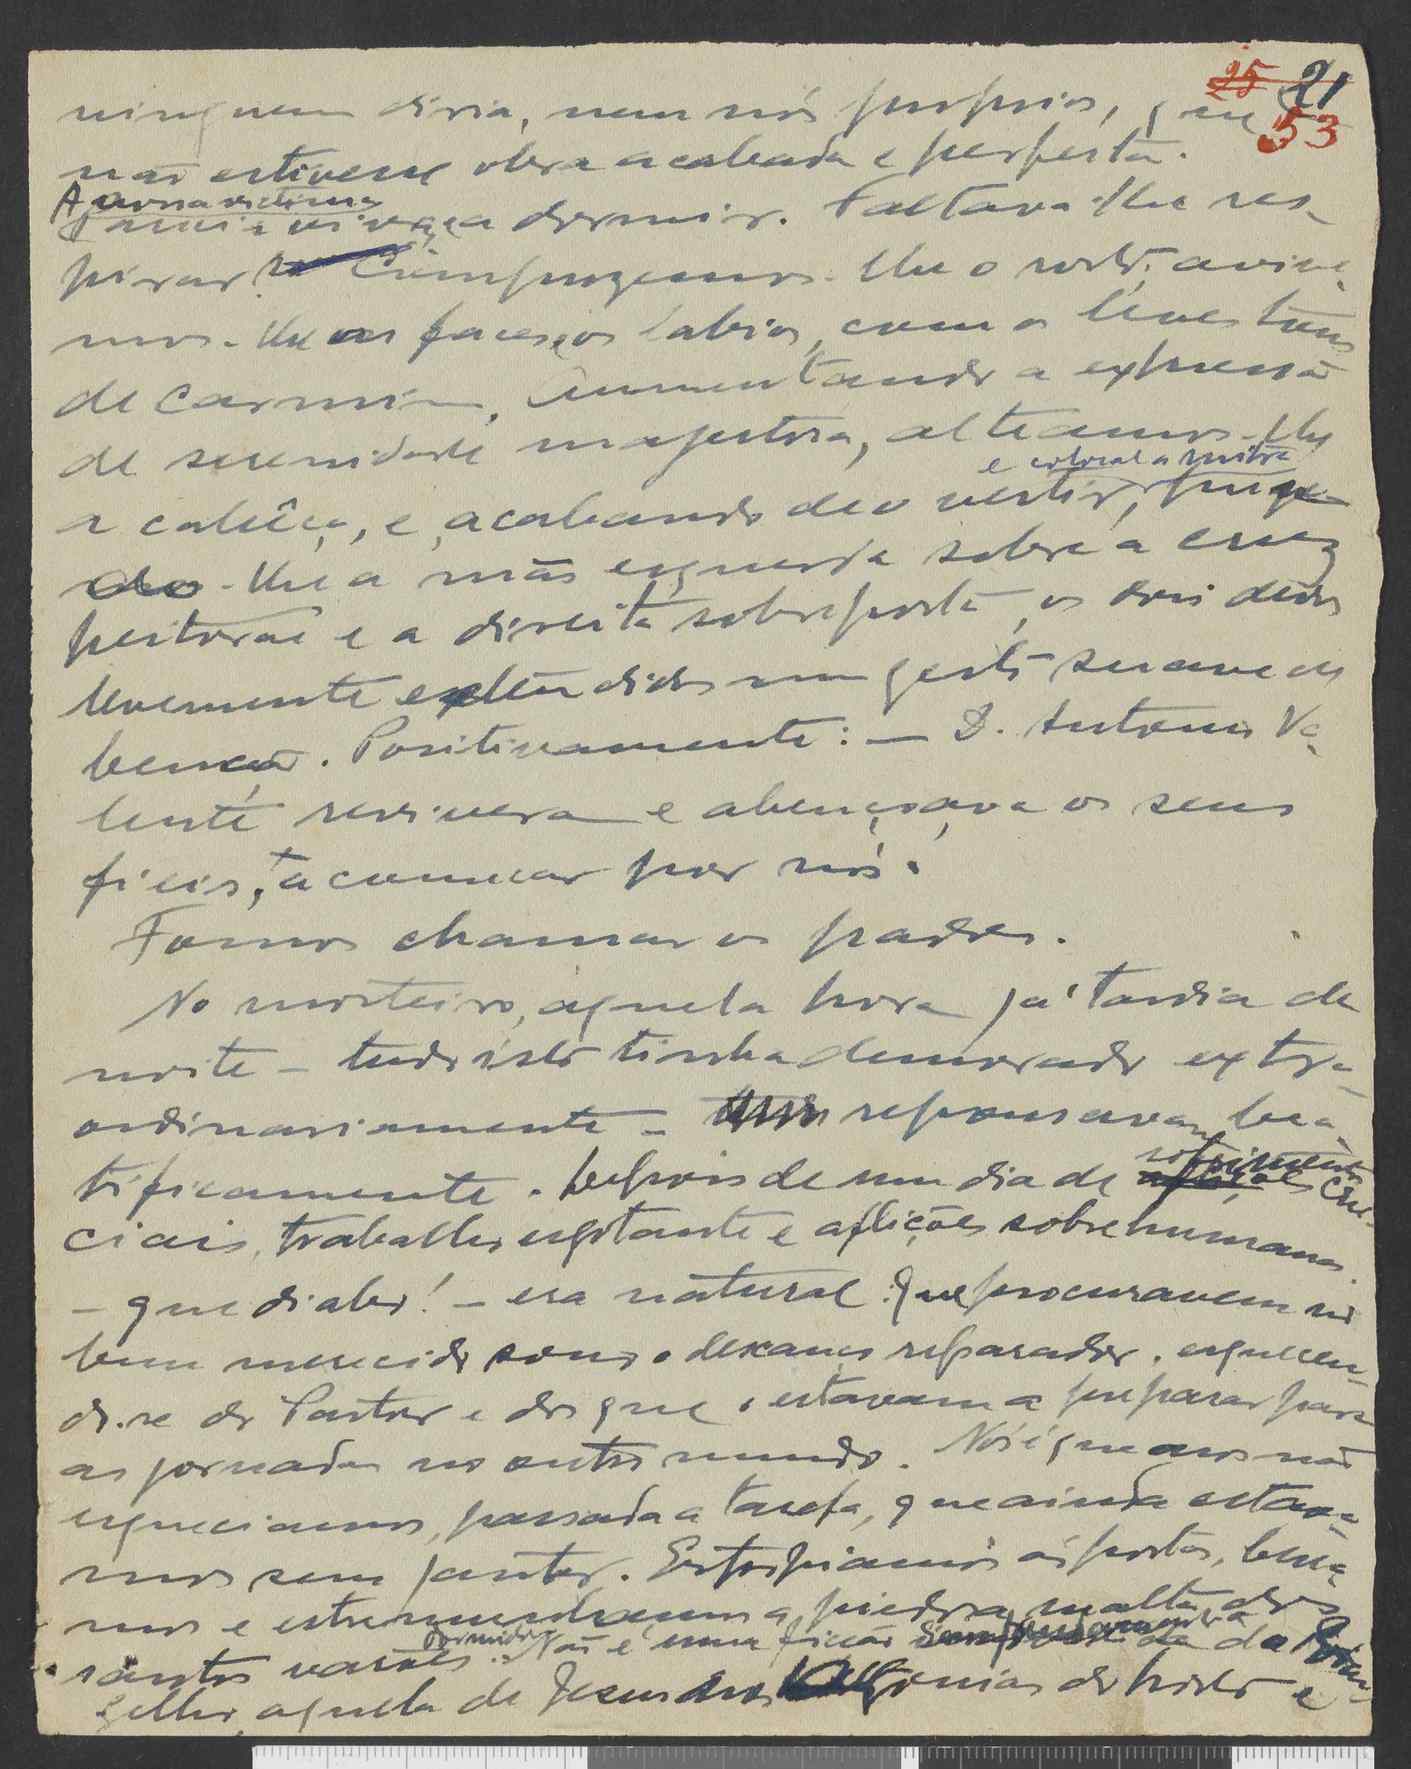 25 21
53
ninguem diria, nem nós proprios, que
não estivesse obra acabada e perfeita.
A nossa victima
Parecia a dormir. Faltava-lhe res-
pirar. Compuzemos-lhe o rosto, avivá-
mos-lhe as faces, os labios, com leves tons
de carmim, aumentando a expressão
de serenidade magestosa, alteamos-lhe
e colocar a mitra
a cabêça, e, acabando de o vestir,
do-lhe a mão esquerda sobre a cruz
peitoral e a direita sobreposta, os dois dedos
levemente extendidos num gesto suave de
benção. Positivamente: — D. Antonio Va-
lente revivera e abençoava os seus
fieis, a começar por nós!
Fomos chamar os padres.
No mosteiro, aquela hora já tardia da
noite – tudo isto tinha demorado extra-
ordinariamente – repousavam bea-
tificamente. Depois de um dia de sofrimentos cru-
ciais, trabalho esgotante e aflições sobrehumanas
– que diabo! – era natural que procurassem no
bem merecido sono o descanço reparador, esquecen-
do-se do Pastor e dos que o estavam a preparar para
as jornadas no outro mundo. Nós é que nos não
esqueciamos, passada a tarefa, que ainda estava-
mos sem jantar. Esfrepiamos ás portas, berrá-
mos e estremunhamos a piedosa malta dos
santos varões dormidos. Não é uma ficção da do Evan-
gelho, aquela de Jesus nas Agonias do horto e